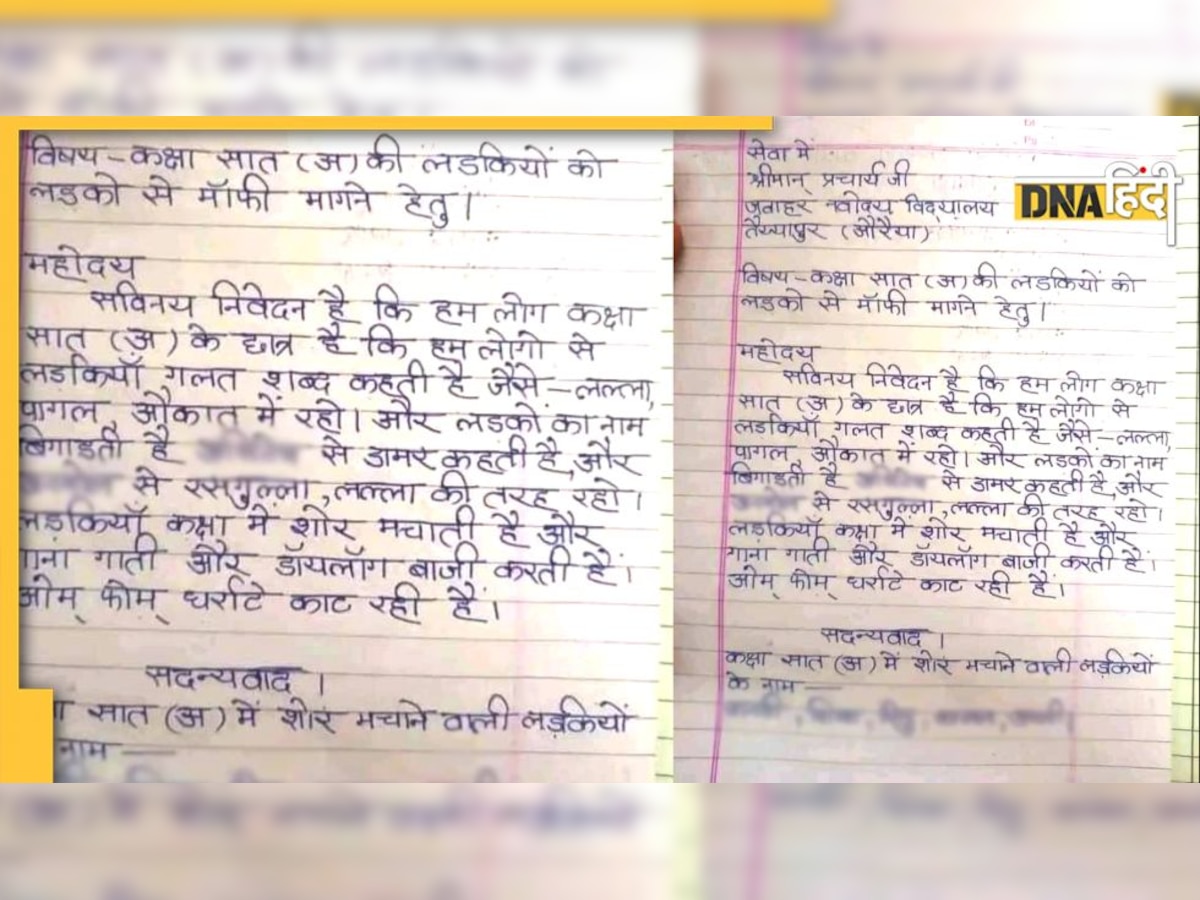 विषय - कक्षा सात (अ) की लडकियों को
लडको से मॉफी मागने हेतु।
महोदय
सविनय निवेदन है कि हम लोग कक्षा
सात (अ) के छात्र है कि हम लोगो से
लडकियाँ गलत शब्द कहती है जैसे - लल्ला,
पागल, औकात में रहो। और लडको का नाम
बिगाडती है से डामर कहती है, और
से रसगुल्ला, लल्ला की तरह रहो।
लड़कियाँ कक्षा में शोर मचाती है और
गाना गाती और डॉयलॉग बाजी करती हैं।
ओम् फोम् घर्राटे काट रही हैं।
सदन्यवाद।
सात (अ) में शोर मचाने वाली लड़कियों
नाम —
सेवा में
श्रीमान् प्रचार्य जी
जवाहर नवोदय विद्यालय
तैय्यापुर (औरैया)
DNA हिंदी
विषय - कक्षा सात (अ) की लडकियों को
लडको से मॉफी मागने हेतु।
महोदय
सविनय निवेदन है कि हम लोग कक्षा
सात (अ) के छात्र है कि हम लोगो से
लडकियाँ गलत शब्द कहती है जैसे - लल्ला,
पागल, औकात में रहो। और लडको का नाम
बिगाडती है से डामर कहती है, और
से रसगुल्ला, लल्ला की तरह रहो।
लड़कियाँ कक्षा में शोर मचाती है और
गाना गाती और डॉयलॉग बाजी करती हैं।
ओम् फोम् घर्राटे काट रही हैं।
सदन्यवाद।
कक्षा सात (अ) में शोर मचाने वाली लड़कियों
के नाम —